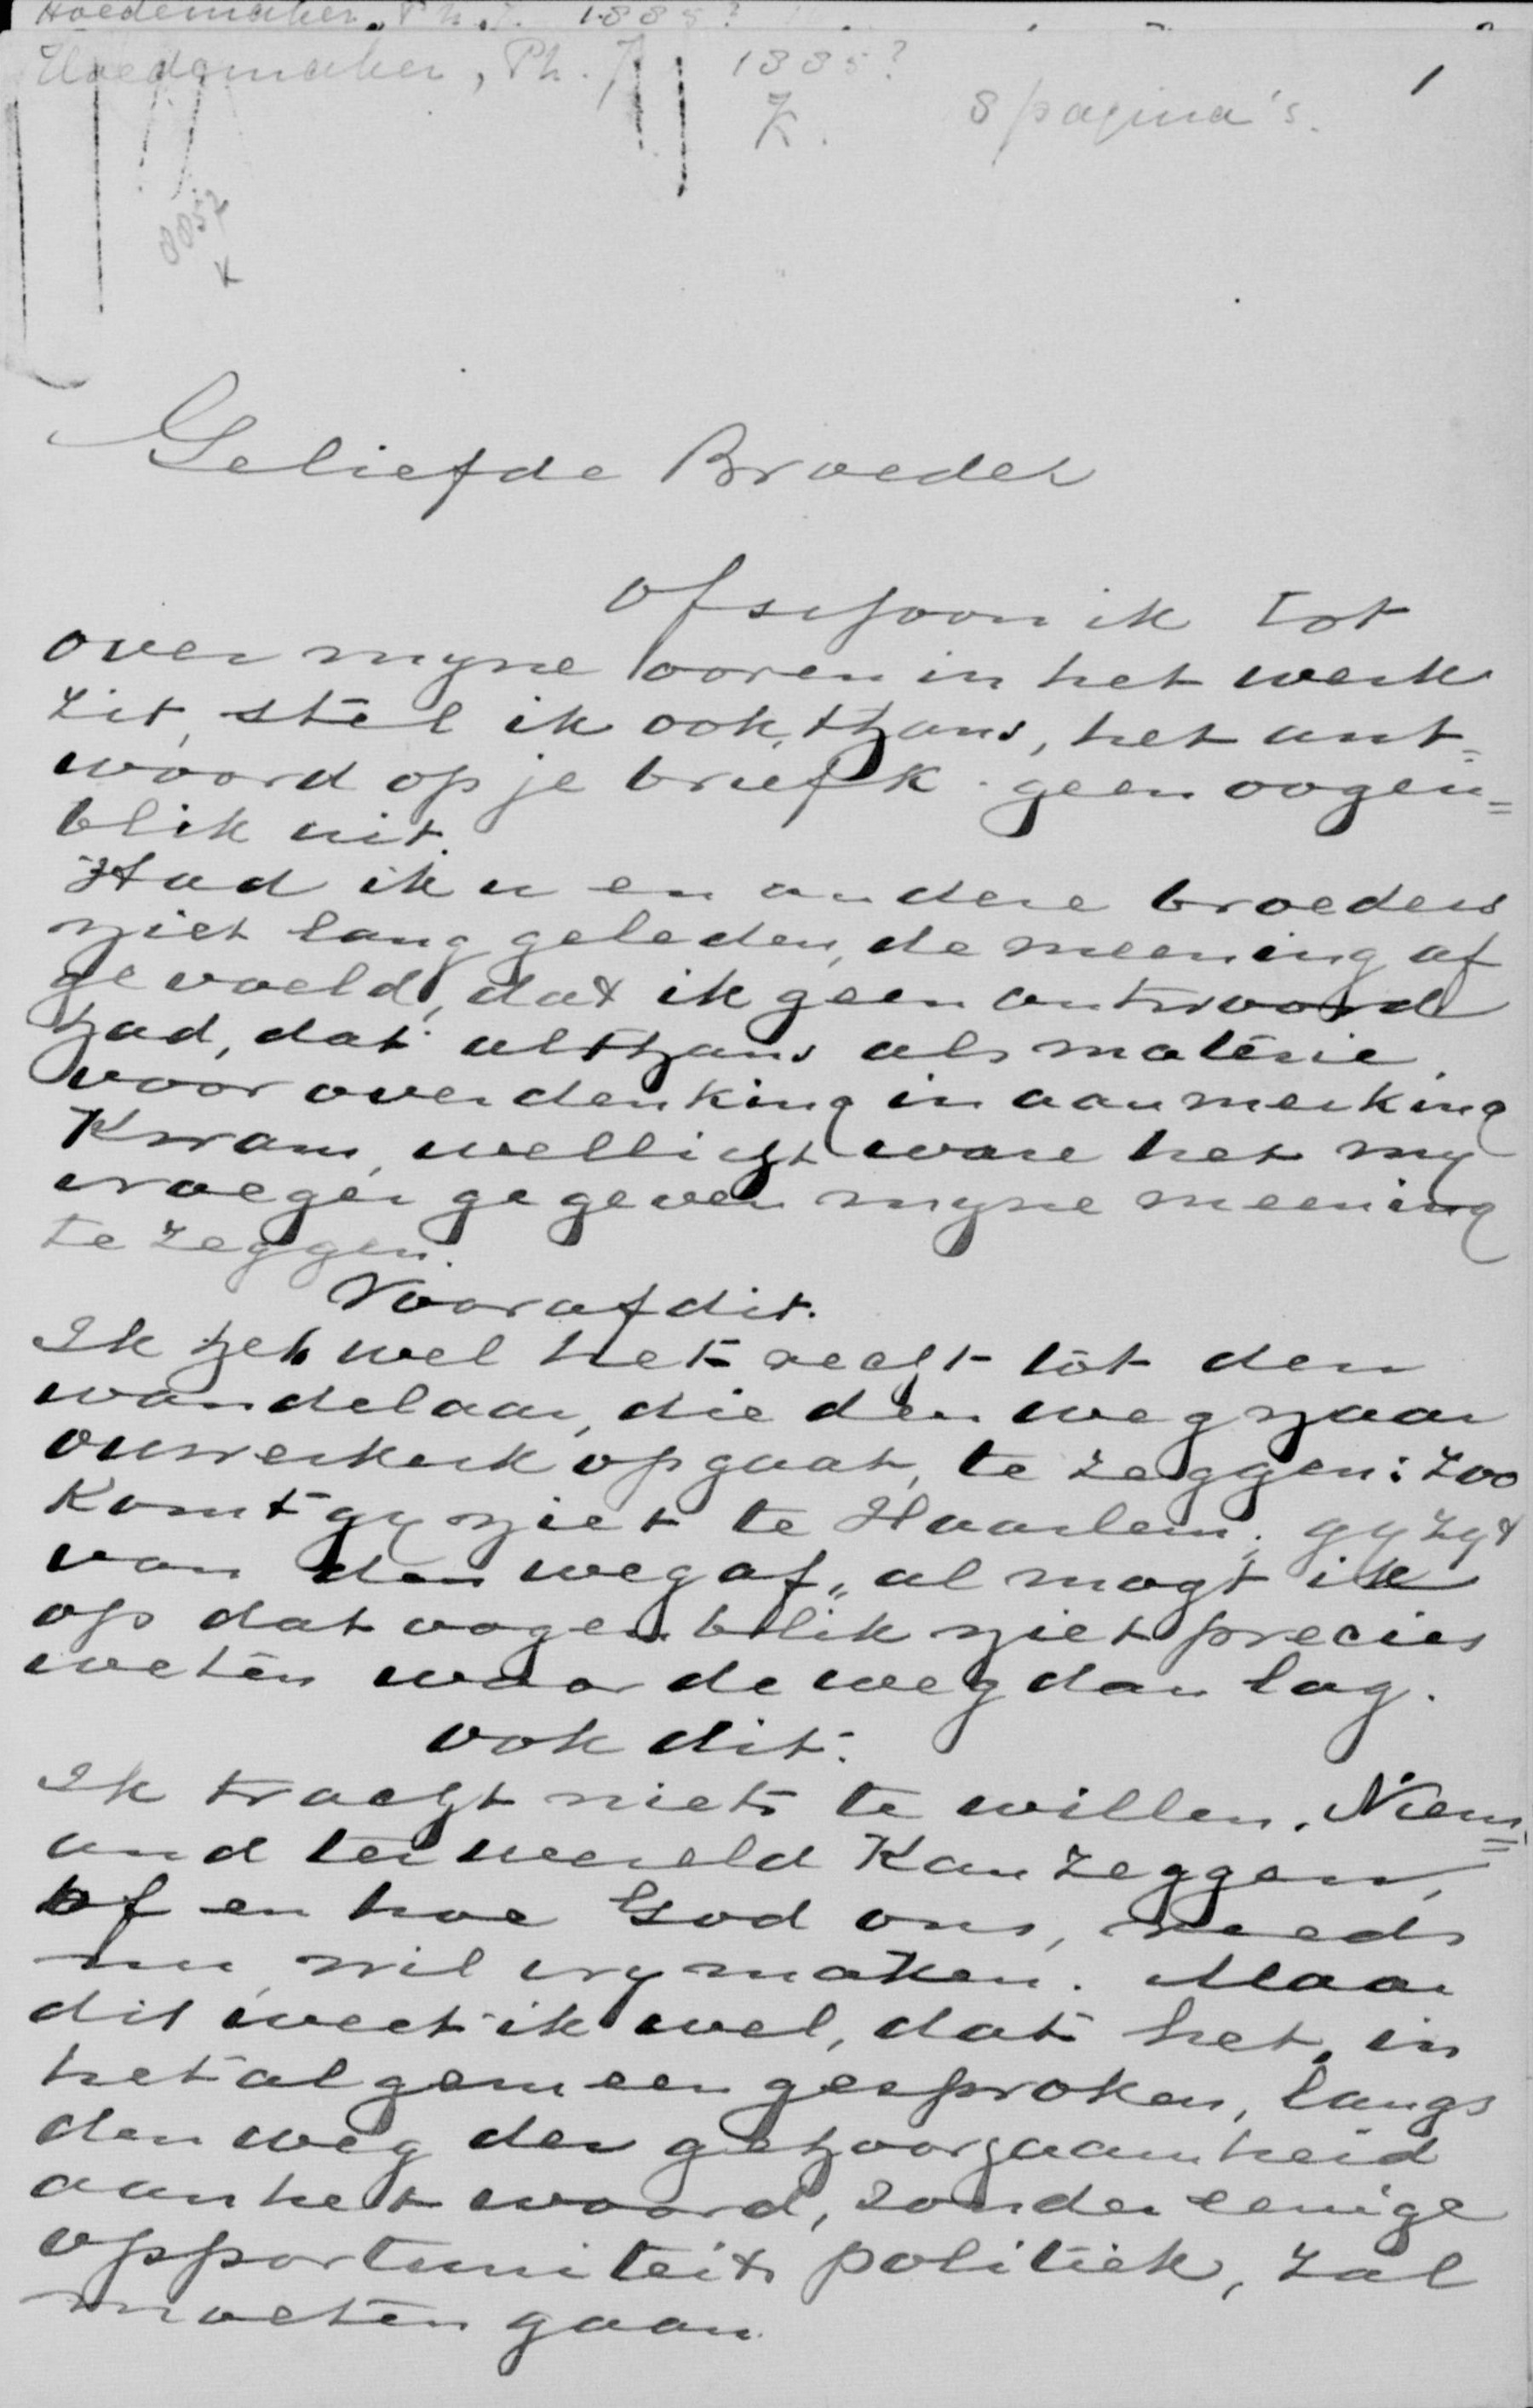 Hoedemaker, Ph.J. 1885?
Hoedemaker, Ph. J 1885? 1
K. 8 pagina's.
0057
K
Geliefde Broeder
Ofschoon ik tot
over myne ooren in het werk
zit, stel ik ook, thans, het ant=
woord op je brief k geen oogen=
blik uit.
Had ik u en andere broeders
niet lang geleden, de meening af
gevoeld, dat ik geen antwoord
had, dat althans als materie
voor overdenking in aanmerking
kwam, wellicht ware het my
vroeger gegeven myne meening
te zeggen.
Vooraf dit.
Ik heb wel het recht tot den
wandelaar, die den weg naar
Ouwerkerk opgaat, te zeggen: zoo
komt gy niet te Haarlem; gy zyt
van den weg af", al mogt ik
op dat oogenblik niet precies
weten waar de weg dan lag.
ook dit:
Ik tracht niets te willen. Niem=
and ter wereld kan zeggen,
of en hoe God ons, reeds
nu wil vrymaken. Maar
dit weet ik wel, dat het, in
het algemeen gesproken, langs
den weg der gehoorzaamheid
aan het woord, zonder eenige
opportuniteits politiek, zal
moeten gaan.